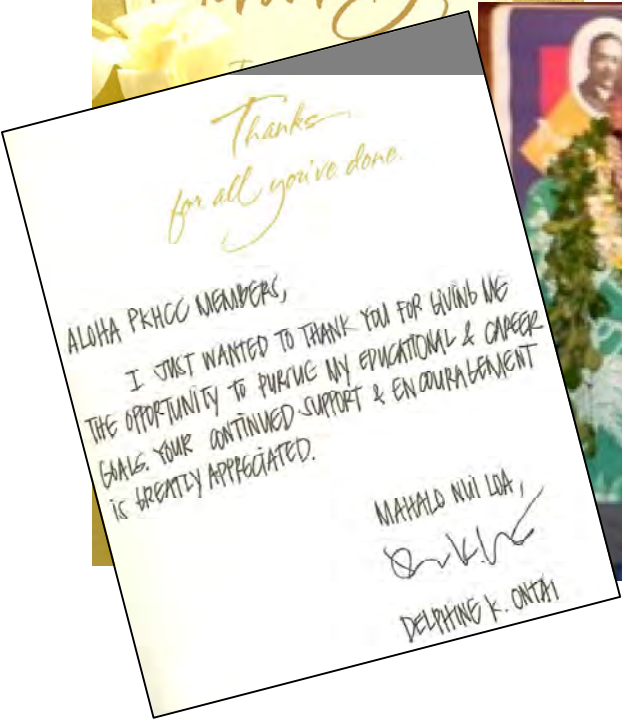 Thanks
for all you've done.
ALOHA PKHCC MEMBERS,
I JUST WANTED TO THANK YOU FOR GIVING ME
THE OPPORTUNITY TO PURSUE MY EDUCATIONAL & CAREER
GOALS. YOUR CONTINUED SUPPORT & ENCOURAGEMENT
IS GREATLY APPRECIATED.
MAHALO NUI LOA,
DELPHINE K. ONTAI